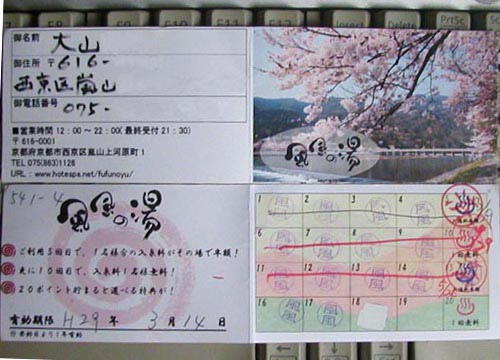 F11
F12
Insert
Delete
PrtSc
御名前
大山
御住所 〒616-
西京区嵐山
御電話番号
075-
■営業時間 12:00～22:00(最終受付21:30)
〒616-0001
京都府京都市西京区嵐山上河原町1
TEL 075(863)1126
URL : www.hotespa.net/fufunoyu/
風風の湯
541-4
風風の湯
ご利用5回目で、1名様分の入浴料がその場で半額!
更に10回目で、入浴料1名様無料!
20ポイント貯まると選べる特典が!
有効期限 H29年 3月14日
1
2
3
4
6
10
1回無料
11
16
17
18
19
20
1回無料